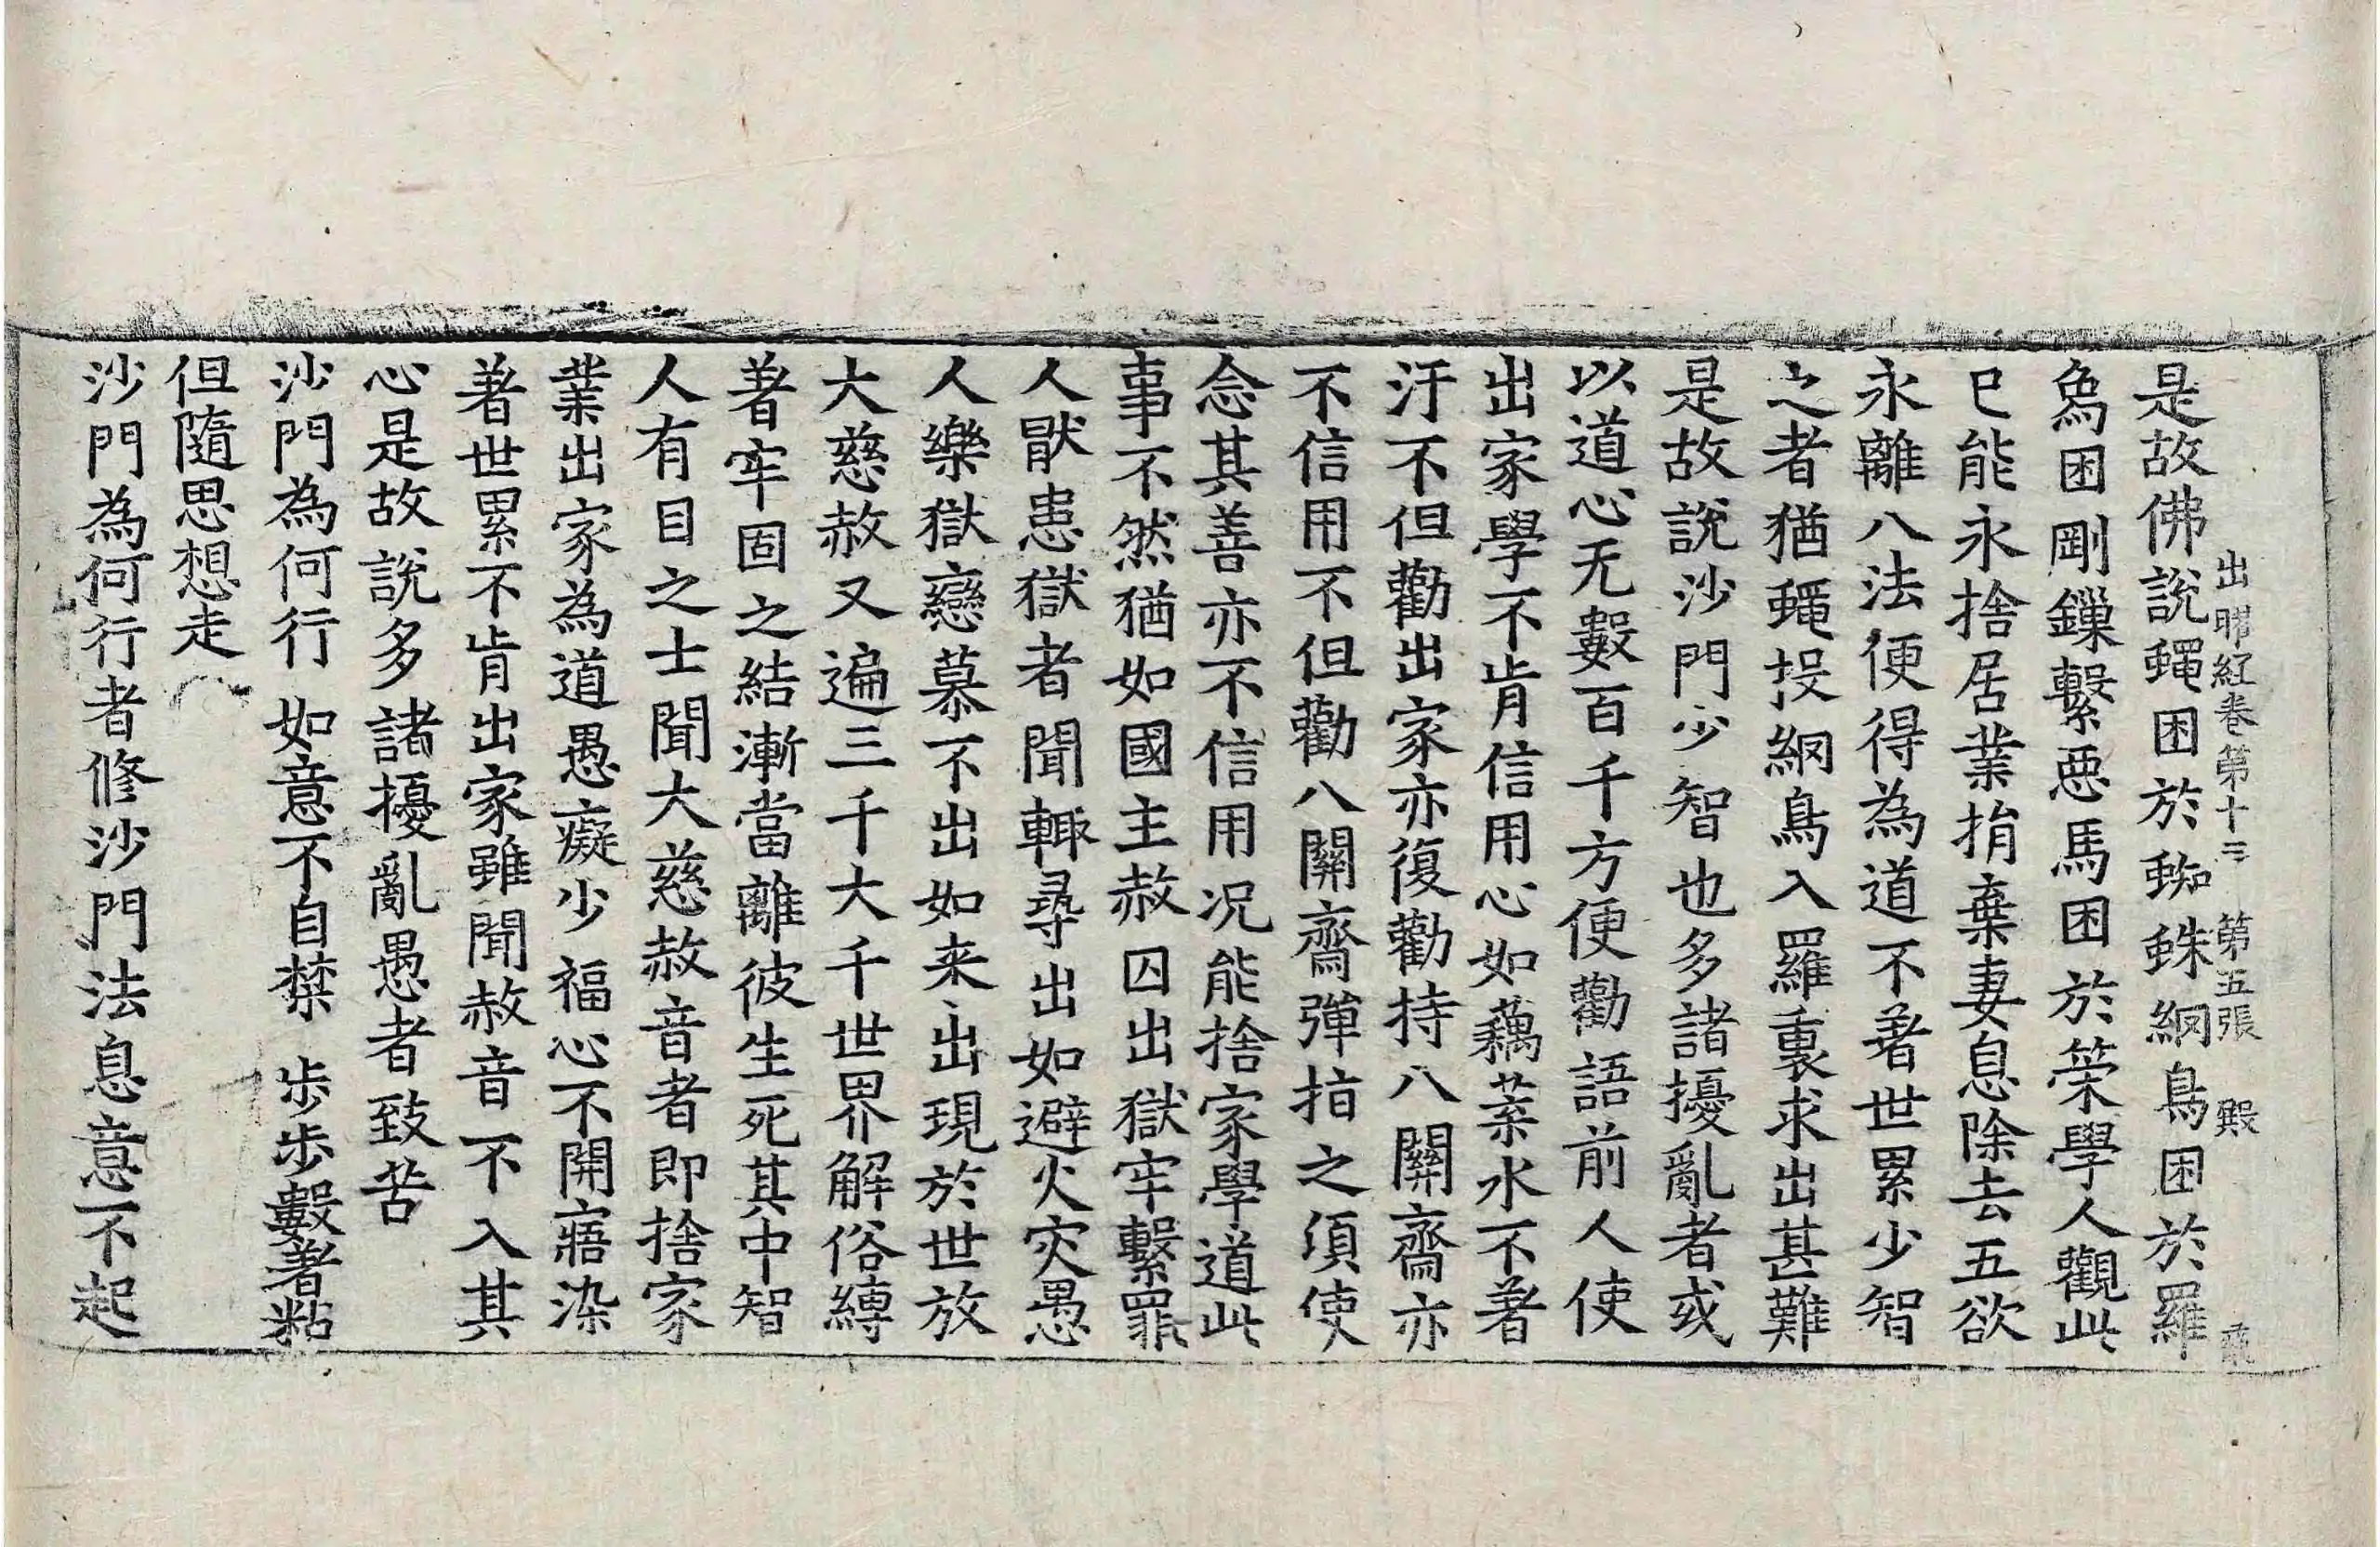 出曜経卷第十三 第五張 殿
是故佛說蠅困於蜘蛛網鳥困於羅
爲困剛鏁繫惡馬困於策學人觀此
已能永捨居業捐棄妻息除去五欲
永離八法便得為道不著世累少智
之者猶蠅投網鳥入羅裏求出甚難
是故說沙門少智也多諸擾亂者或
以道心无數百千方便勸語前人使
出家學不肯信用心如藕葉水不著
汙不但勸出家亦復勸持八關齋亦
不信用不但勸八關齋彈指之須使
念其善亦不信用況能捨家學道此
事不然猶如國主赦囚出獄牢繫罪
人猒患獄者聞輙尋出如避火灾愚
人樂獄戀慕不出如来出現於世放
大慈赦又遍三千大千世界解俗縛
著牢固之結漸當離彼生死其中智
人有目之士聞大慈赦音者即捨家
業出家為道愚癡少福心不開寤染
著世累不肯出家雖聞赦音不入其
心是故說多諸擾亂愚者致苦
沙門為何行 如意不自禁 步步數著粘
但隨思想走
沙門為何行者修沙門法息意不起